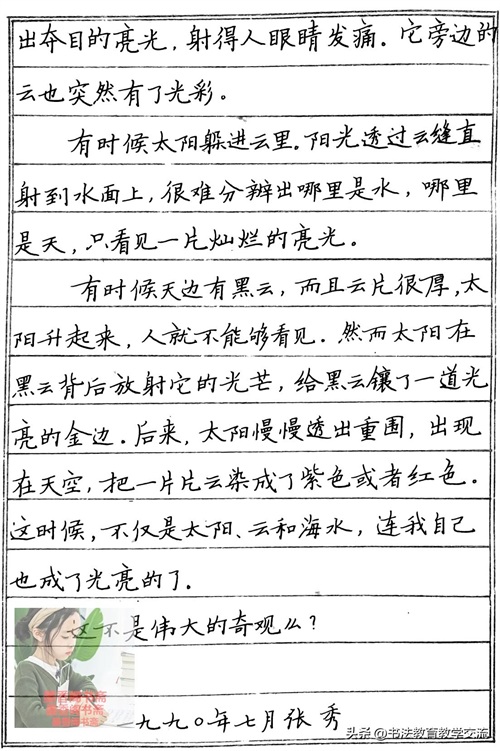 出夺目的亮光，射得人眼睛发痛．它旁边的
云也突然有了光彩。
有时候太阳躲进云里．阳光透过云缝直
射到水面上，很难分辨出哪里是水，哪里
是天，只看见一片灿烂的亮光。
有时候天边有黑云，而且云片很厚，太
阳升起来，人就不能够看见．然而太阳在
黑云背后放射它的光芒，给黑云镶了一道光
亮的金边．后来，太阳慢慢透出重围，出现
在天空，把一片片云染成了紫色或者红色．
这时候，不仅是太阳、云和海水，连我自己
也成了光亮的了．
这不是伟大的奇观么？
一九九〇年七月张秀
头条@书法教育教学交流